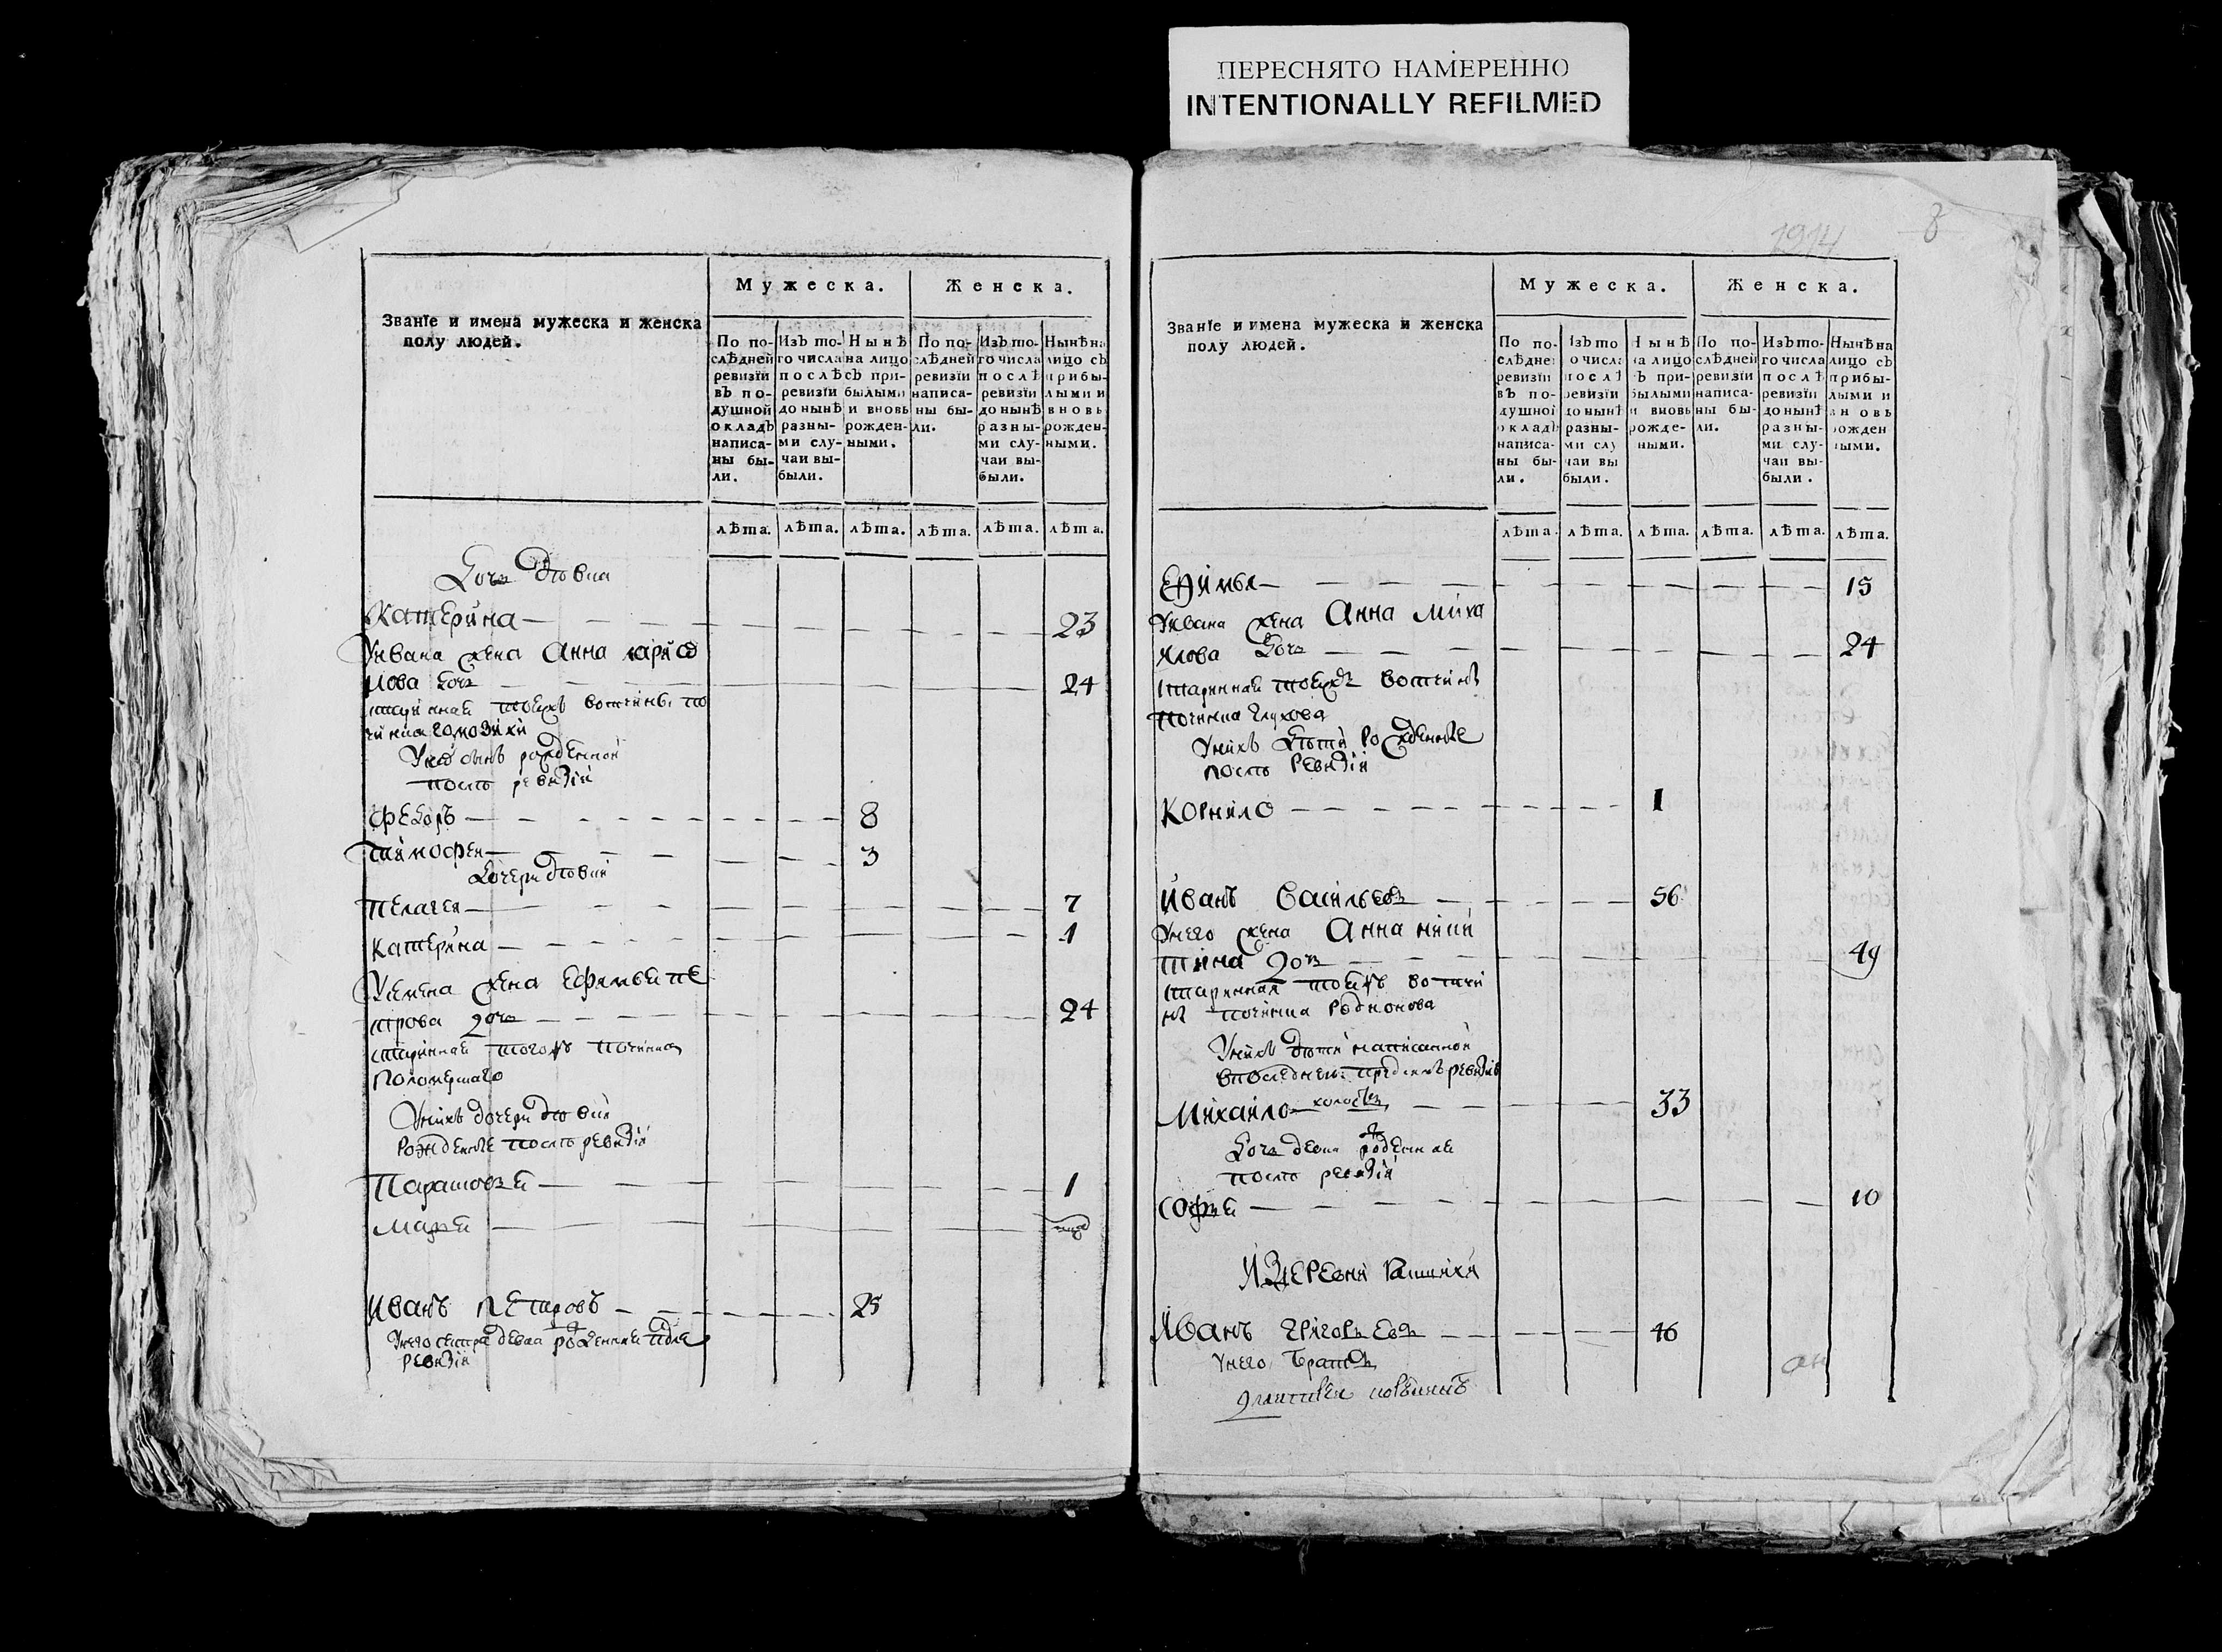 ПЕРЕСНЯТО НАМЕРЕННО
INTENTIONALLY REFILMED
Званїе и имена мужеска и женска
полу людей.
Мужеска.
Женска.
По по-
слѣдней
ревизїи
въ по-
душной
окладъ
написа-
ны бы-
ли.
Изъ то-
го числа
послѣ
ревизїи
до нынѣ
разны-
ми слу-
чаи вы-
были.
Нынѣ
на лицо
съ при-
былыми
и вновь
рожден-
ными.
По по-
слѣдней
ревизїи
написа-
ны бы-
ли.
Изъ то-
го числа
послѣ
ревизїи
до нынѣ
разны-
ми слу-
чаи вы-
были.
Нынѣ на
лицо съ
прибы-
лыми и
вновь
рожден-
ными.
лѣта. лѣта. лѣта. лѣта. лѣта. лѣта.
Дочь девка
Катерина 23
Уивана жена Анна
нова дочь 24
старинная тоежъ вотчины по
чинка
рожденной
после ревизїи
Федоръ 8
Тимофеи 3
Дочери девки
Пелагея 7
Катерина 1
жена Ефимья Пе
трова дочь 24
старинная тогожъ починка
Уних дочери девки
рожденые после ревизїи
Парасковья 1
Марья
Иванъ Петровъ 25
Унего сестра девка рожденная после
ревизїи
1914
8
Званїе и имена мужеска и женска
полу людей.
Мужеска.
Женска.
По по-
слѣдне
ревизїи
въ по-
душной
окладъ
написа-
ны бы-
ли.
Изъ то
о числа
послѣ
ревизїи
до нынѣ
разны-
ми слу
чаи вы
были.
Нынѣ
на лицо
ъ при-
былыми
и вновь
рожде-
ными.
По по-
слѣдней
ревизїи
написа-
ны бы-
ли.
Изъ то-
го числа
послѣ
ревизїи
до нынѣ
разны-
ми слу-
чаи вы-
были.
Нынѣ на
лицо съ
прибы-
лыми и
вновь
рожден
ными.
лѣта. лѣта. лѣта. лѣта. лѣта. лѣта.
Ефимья 15
Уивана жена Анна Миха
илова дочь 24
старинная тоежъ вотчинъ
починка Глухова
Унихъ дети рожденые
после ревизїи
Корнило 1
Иванъ Васильевъ 56
Унего жена Анна Ники
тина дочь 49
старинная тоежъ вотчи
нъ починка Родионова
Унихъ дети написанной
впоследней пред симъ ревизїи
Михаило холостъ 33
Дочь девка рожденная
после ревизїи
Софья 10
Иванъ Григорьевъ 46
Унего братъ